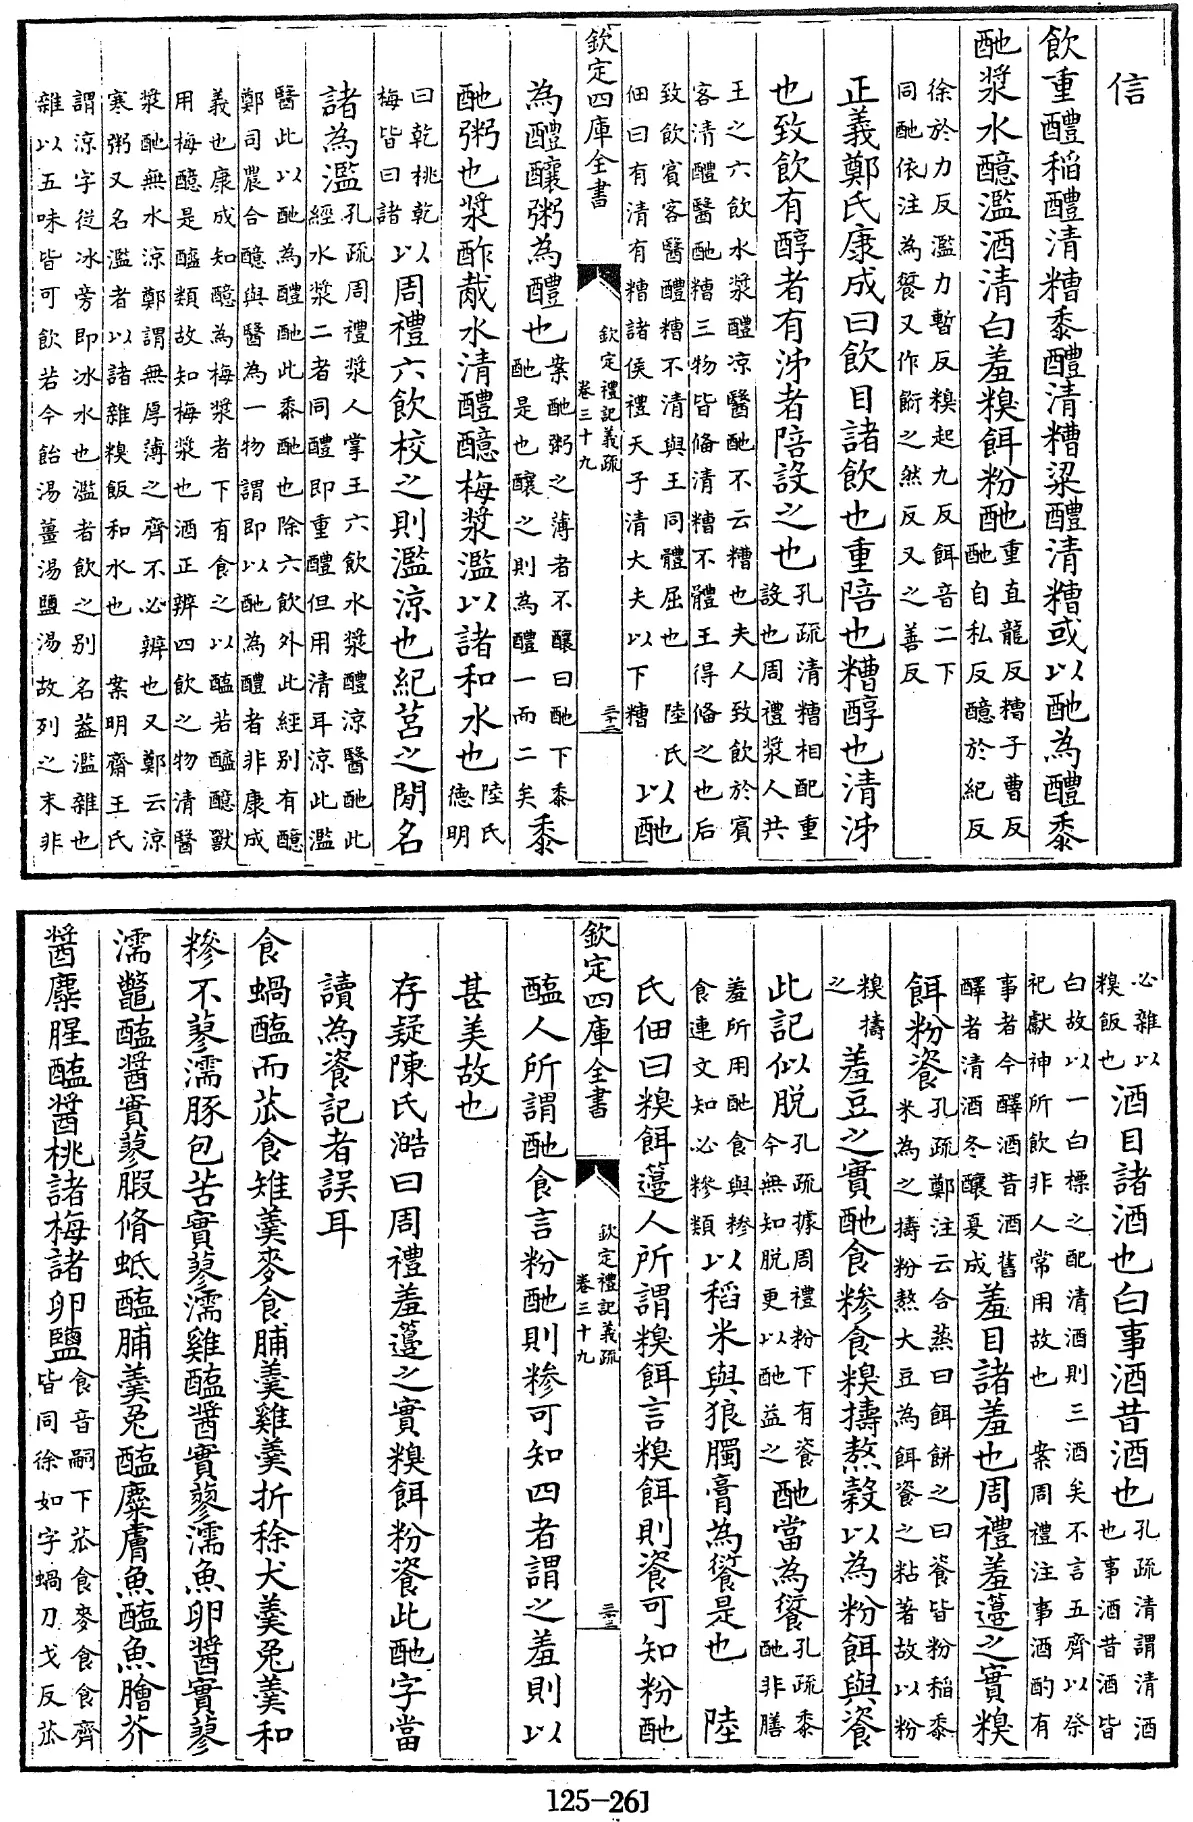 信
飲重醴稻醴清糟黍醴清糟粱醴清糟或以酏為醴黍
酏漿水醷濫酒清白羞糗餌粉酏重直龍反糟子曹反酏自私反醷於紀反
徐於力反濫力暫反糗起九反餌音二下同酏依注為餰又作飦之然反又之善反
正義鄭氏康成曰飲目諸飲也重陪也糟醇也清泲
也致飲有醇者有泲者陪設之也孔疏清糟相配重設也周禮漿人共
王之六飲水漿醴涼醫酏不云糟也夫人致飲於賓客清醴醫酏糟三物皆備清糟不體王得備之也后
致飲賓客醫醴糟不清與王同體屈也 陸氏佃曰有清有糟諸侯禮天子清大夫以下糟以酏
欽定四庫全書 欽定禮記義疏卷三十九 三十二
為醴釀粥為醴也案酏粥之薄者不釀曰酏下黍酏是也釀之則為醴一而二矣黍
酏粥也漿酢酨水清醴醷梅漿濫以諸和水也陸氏德明
曰乾桃乾梅皆曰諸以周禮六飲校之則濫涼也紀莒之閒名
諸為濫孔疏周禮漿人掌王六飲水漿醴涼醫酏此經水漿二者同醴即重醴但用清耳涼此濫
醫此以酏為醴酏此黍酏也除六飲外此經別有醷鄭司農合醷與醫為一物謂即以酏為醴者非康成
義也康成知醷為梅漿者下有食之以醢若醯醷獸用梅醷是醯類故知梅漿也酒正辨四飲之物清醫
漿酏無水涼鄭謂無厚薄之齊不必辨也又鄭云涼寒粥又名濫者以諸雜糗飯和水也 案明齋王氏
謂涼字從冰旁即冰水也濫者飲之别名葢濫雜也雜以五味皆可飲若今飴湯薑湯鹽湯故列之末非
必雜以糗飯也酒目諸酒也白事酒昔酒也孔疏清謂清酒也事酒昔酒皆
白故以一白標之配清酒則三酒矣不言五齊以祭祀獻神所飲非人常用故也 案周禮注事酒酌有
事者今醳酒昔酒舊醳者清酒冬釀夏成羞目諸羞也周禮羞籩之實糗
餌粉餈孔疏鄭注云合蒸曰餌餅之曰餈皆粉稻黍米為之擣粉熬大豆為餌餈之粘著故以粉
糗擣之羞豆之實酏食糝食糗擣熬穀以為粉餌與餈
此記似脫孔疏據周禮粉下有餈今無知脫更以酏益之酏當為餰孔疏黍酏非膳
羞所用酏食與糝食連文知必糝類以稻米與狼臅膏為餰是也 陸
氏佃曰糗餌籩人所謂糗餌言糗餌則餈可知粉酏
欽定四庫全書 欽定禮記義疏卷三十九 三十三
醢人所謂酏食言粉酏則糝可知四者謂之羞則以
甚美故也
存疑陳氏澔曰周禮羞籩之實糗餌粉餈此酏字當
讀為餈記者誤耳
食蝸醢而苽食雉羹麥食脯羹雞羹折稌犬羹兔羹和
糝不蓼濡豚包苦實蓼濡雞醢醬實蓼濡魚卵醬實蓼
濡鼈醢醬實蓼腶脩蚳醢脯羹兔醢麋膚魚醢魚膾芥
醬麋腥醢醬桃諸梅諸卵鹽食音嗣下苽食麥食食齊皆同徐如字蝸力戈反苽
125-261